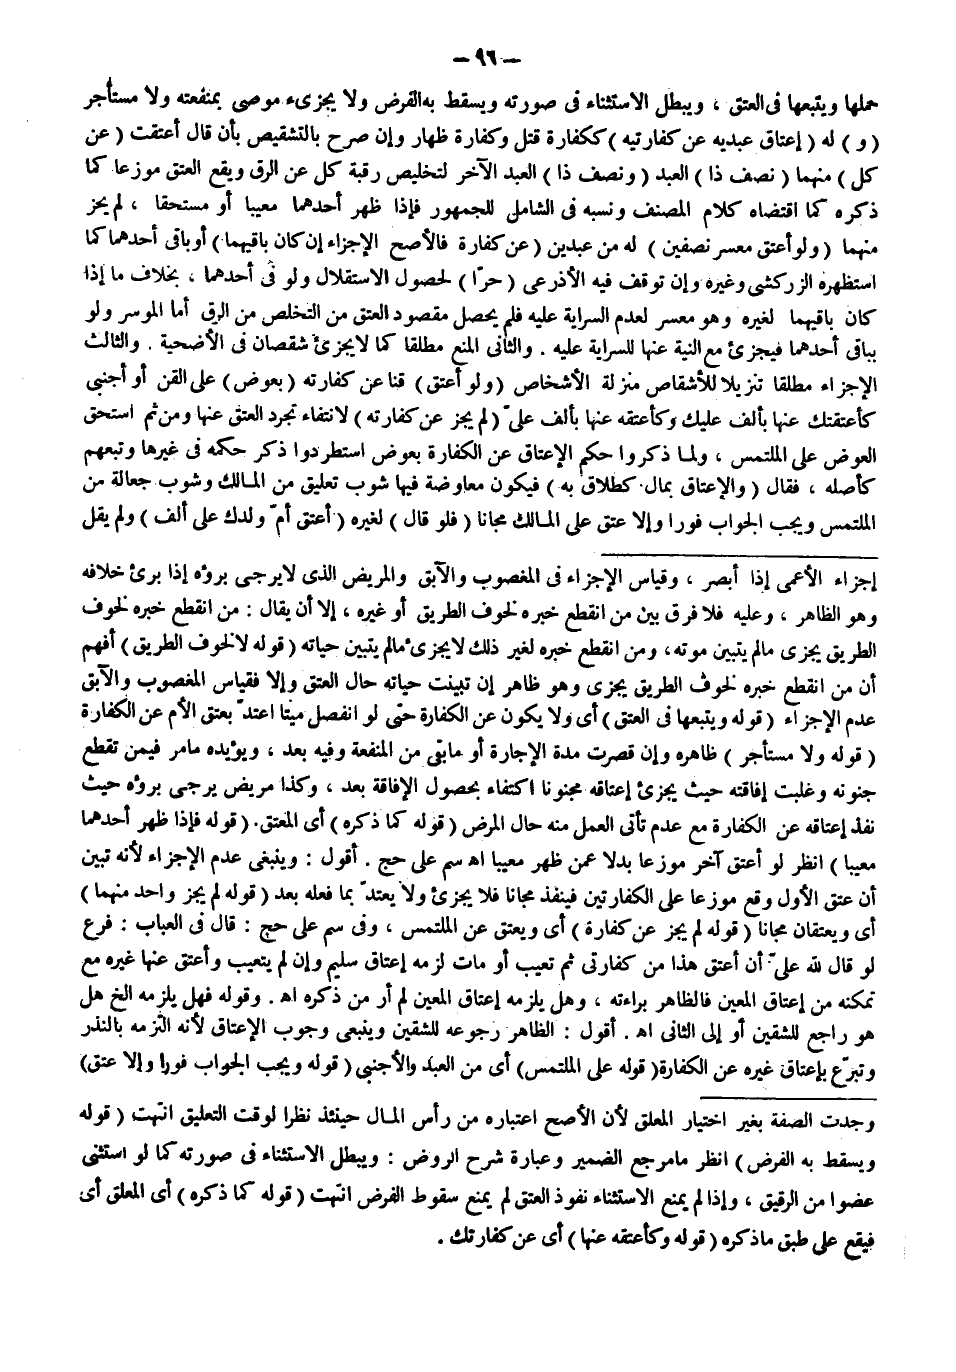 — ٩٦ —
حملها ويتبعها فى العتق ، ويبطل الاستثناء فى صورته ويسقط به الفرض ولا يجزىء موصى بمنفعته ولا مستأجر
( و ) له ( إعتاق عبديه عن كفارتيه ) ككفارة قتل وكفارة ظهار وإن صرح بالتشقيص بأن قال أعتقت ( عن
كل ) منهما ( نصف ذا ) العبد ( ونصف ذا ) العبد الآخر لتخليص رقبة كل عن الرق ويقع العتق موزعا كما
ذكره كما اقتضاه كلام المصنف ونسبه فى الشامل للجمهور فإذا ظهر أحدهما معيبا أو مستحقا ، لم يجز
منهما ( ولو أعتق معسر نصفين ) له من عبدين ( عن كفارة فالأصح الإجزاء إن كان باقيهما ) أو باقى أحدهما كما
استظهره الزركشى وغيره وإن توقف فيه الأذرعى ( حرّا ) لحصول الاستقلال ولو فى أحدهما ، بخلاف ما إذا
كان باقيهما لغيره وهو معسر لعدم السراية عليه فلم يحصل مقصود العتق من التخلص من الرق أما الموسر ولو
بباقى أحدهما فيجزئ مع النية عنها للسراية عليه . والثانى المنع مطلقا كما لايجزئ شقصان فى الأضحية . والثالث
الإجزاء مطلقا تنزيلا للأشقاص منزلة الأشخاص ( ولو أعتق ) قنا عن كفارته ( بعوض ) على القن أو أجنبى
كأعتقتك عنها بألف عليك وكأعتقه عنها بألف علىّ ( لم يجز عن كفارته ) لانتفاء تجرد العتق عنها ومن ثم استحق
العوض على الملتمس ، ولما ذكروا حكم الإعتاق عن الكفارة بعوض استطردوا ذكر حكمه فى غيرها وتبعهم
كأصله ، فقال ( والإعتاق بمال كطلاق به ) فيكون معاوضة فيها شوب تعليق من المالك وشوب جعالة من
الملتمس ويجب الجواب فورا وإلا عتق على المالك مجانا ( فلو قال ) لغيره ( أعتق أمّ ولدك على ألف ) ولم يقل
إجزاء الأعمى إذا أبصر ، وقياس الإجزاء فى المغصوب والآبق والمريض الذى لايرجى برؤه إذا برئ خلافه
وهو الظاهر ، وعليه فلا فرق بين من انقطع خبره لخوف الطريق أو غيره ، إلا أن يقال : من انقطع خبره لخوف
الطريق يجزى مالم يتبين موته، ومن انقطع خبره لغير ذلك لايجزئ مالم يتبين حياته ( قوله لالخوف الطريق ) أفهم
أن من انقطع خبره لخوف الطريق يجزى وهو ظاهر إن تبينت حياته حال العتق وإلا فقياس المغصوب والآبق
عدم الإجزاء ( قوله ويتبعها فى العتق ) أى ولا يكون عن الكفارة حتى لو انفصل ميتا اعتدّ بعتق الأم عن الكفارة
( قوله ولا مستأجر ) ظاهره وإن قصرت مدة الإجارة أو مابقى من المنفعة وفيه بعد ، ويؤيده مامر فيمن تقطع
جنونه وغلبت إفاقته حيث يجزئ إعتاقه مجنونا اكتفاء بحصول الإفاقة بعد ، وكذا مريض يرجى برؤه حيث
نفذ إعتاقه عن الكفارة مع عدم تأتى العمل منه حال المرض ( قوله كما ذكره ) أى المعتق. ( قوله فإذا ظهر أحدهما
معيبا ) انظر لو أعتق آخر موزعا بدلا عمن ظهر معيبا اه سم على حج . أقول : وينبغى عدم الإجزاء لأنه تبين
أن عتق الأول وقع موزعا على الكفارتين فينفذ مجانا فلا يجزئ ولا يعتدّ بما فعله بعد ( قوله لم يجز واحد منهما )
أى ويعتقان مجانا ( قوله لم يجز عن كفارة ) أى ويعتق عن الملتمس ، وفى سم على حج : قال فى العباب : فرع
لو قال لله علىّ أن أعتق هذا من كفارتى ثم تعيب أو مات لزمه إعتاق سليم وإن لم يتعيب وأعتق عنها غيره مع
تمكنه من إعتاق المعين فالظاهر براءته ، وهل يلزمه إعتاق المعين لم أر من ذكره اه . وقوله فهل يلزمه الخ هل
هو راجع للشقين أو إلى الثانى اه . أقول : الظاهر رجوعه للشقين وينبغى وجوب الإعتاق لأنه التزمه بالنذر
وتبرّع بإعتاق غيره عن الكفارة( قوله على الملتمس) أى من العبد والأجنبى ( قوله ويجب الجواب فورا وإلا عتق)
وجدت الصفة بغير اختيار المعلق لأن الأصح اعتباره من رأس المال حينئذ نظرا لوقت التعليق انتهت ( قوله
ويسقط به الفرض ) انظر مامرجع الضمير وعبارة شرح الروض : ويبطل الاستثناء فى صورته كما لو استثنى
عضوا من الرقيق ، وإذا لم يمنع الاستثناء نفوذ العتق لم يمنع سقوط الفرض انتهت ( قوله كما ذكره ) أى المعلق أى
فيقع على طبق ماذكره ( قوله وكأعتقه عنها ) أى عن كفارتك .